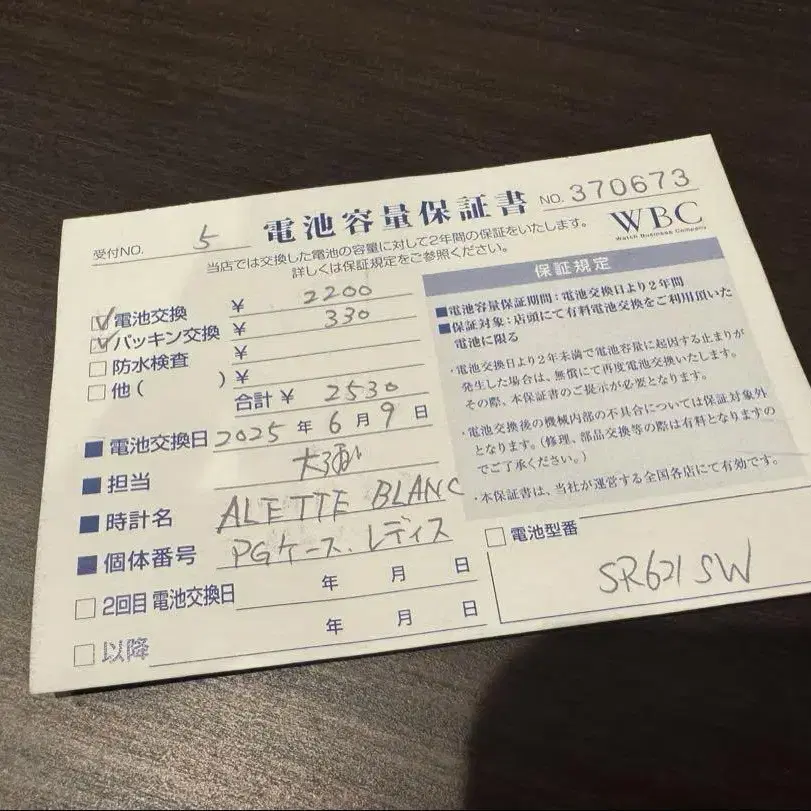 受付NO. 5
電池容量保証書
NO. 370673
当店では交換した電池の容量に対して2年間の保証をいたします。
詳しくは保証規定をご参照ください。
WBC
Watch Business Company
電池交換 ¥ 2200
パッキン交換 ¥ 330
防水検査 ¥
他( ) ¥
合計 ¥ 2530
■電池交換日 2025年6月9日
■担当
■時計名 ALETTE BLANC
■個体番号 PGケース.レディス
2回目電池交換日 年 月 日
以降 年 月 日
保証規定
■電池容量保証期間:電池交換日より2年間
■保証対象:店頭にて有料電池交換をご利用頂いた
電池に限る
・電池交換日より2年未満で電池容量に起因する止まりが
発生した場合は、無償にて再度電池交換いたします。
その際、本保証書のご提示が必要となります。
・電池交換後の機械内部の不具合については保証対象外
となります。(修理、部品交換等の際は有料となりますの
でご了承ください。)
・本保証書は、当社が運営する全国各店にて有効です。
電池型番
SR621SW